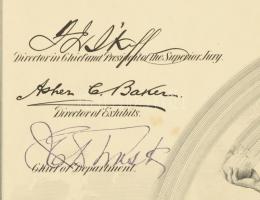 Director in Chief and President of the Superior Jury.
Asher C. Baker.
Director of Exhibits.
Chief of Department.